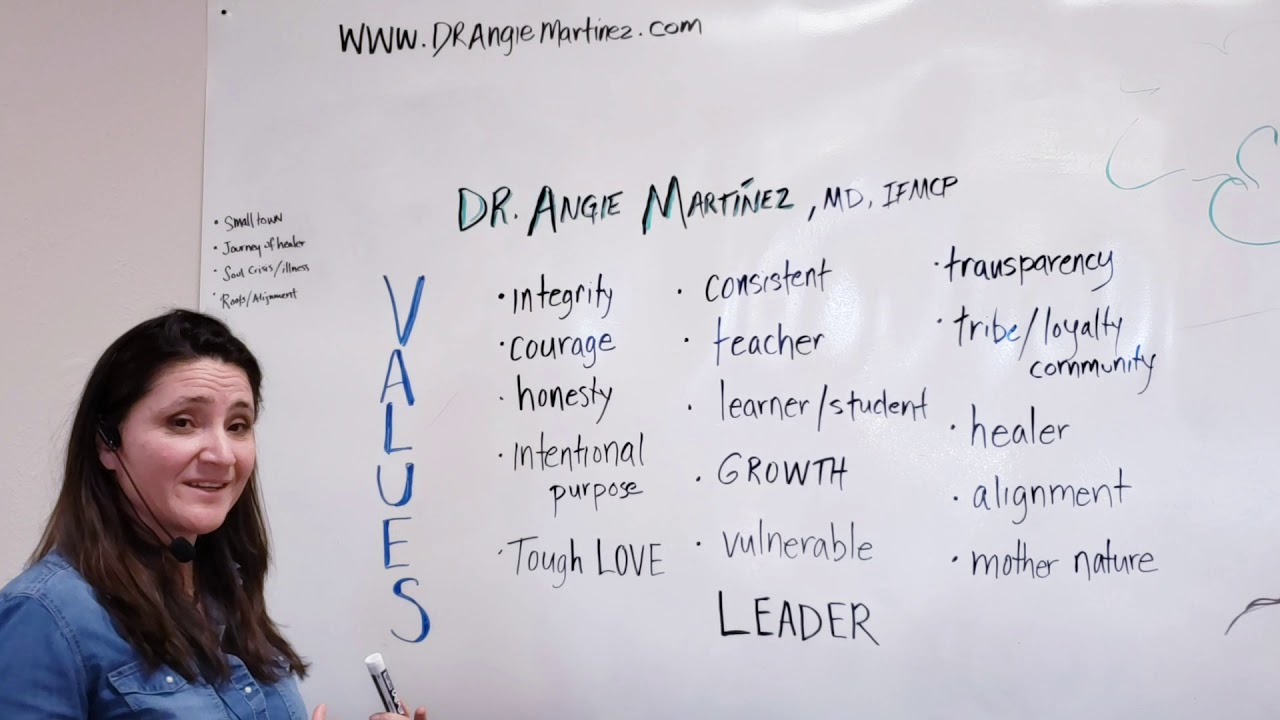 WWW.DRAngieMartinez.com
DR. ANGIE MARTÍNEZ, MD, IFMCP
• Small town
• Journey of healer
• Soul Crisis/illness
• Roots/Alignment
VALUES
• integrity
• courage
• honesty
• intentional
purpose
• Tough LOVE
• consistent
• teacher
• learner/student
• GROWTH
• vulnerable
LEADER
• transparency
• tribe/loyalty
community
• healer
• alignment
• mother nature